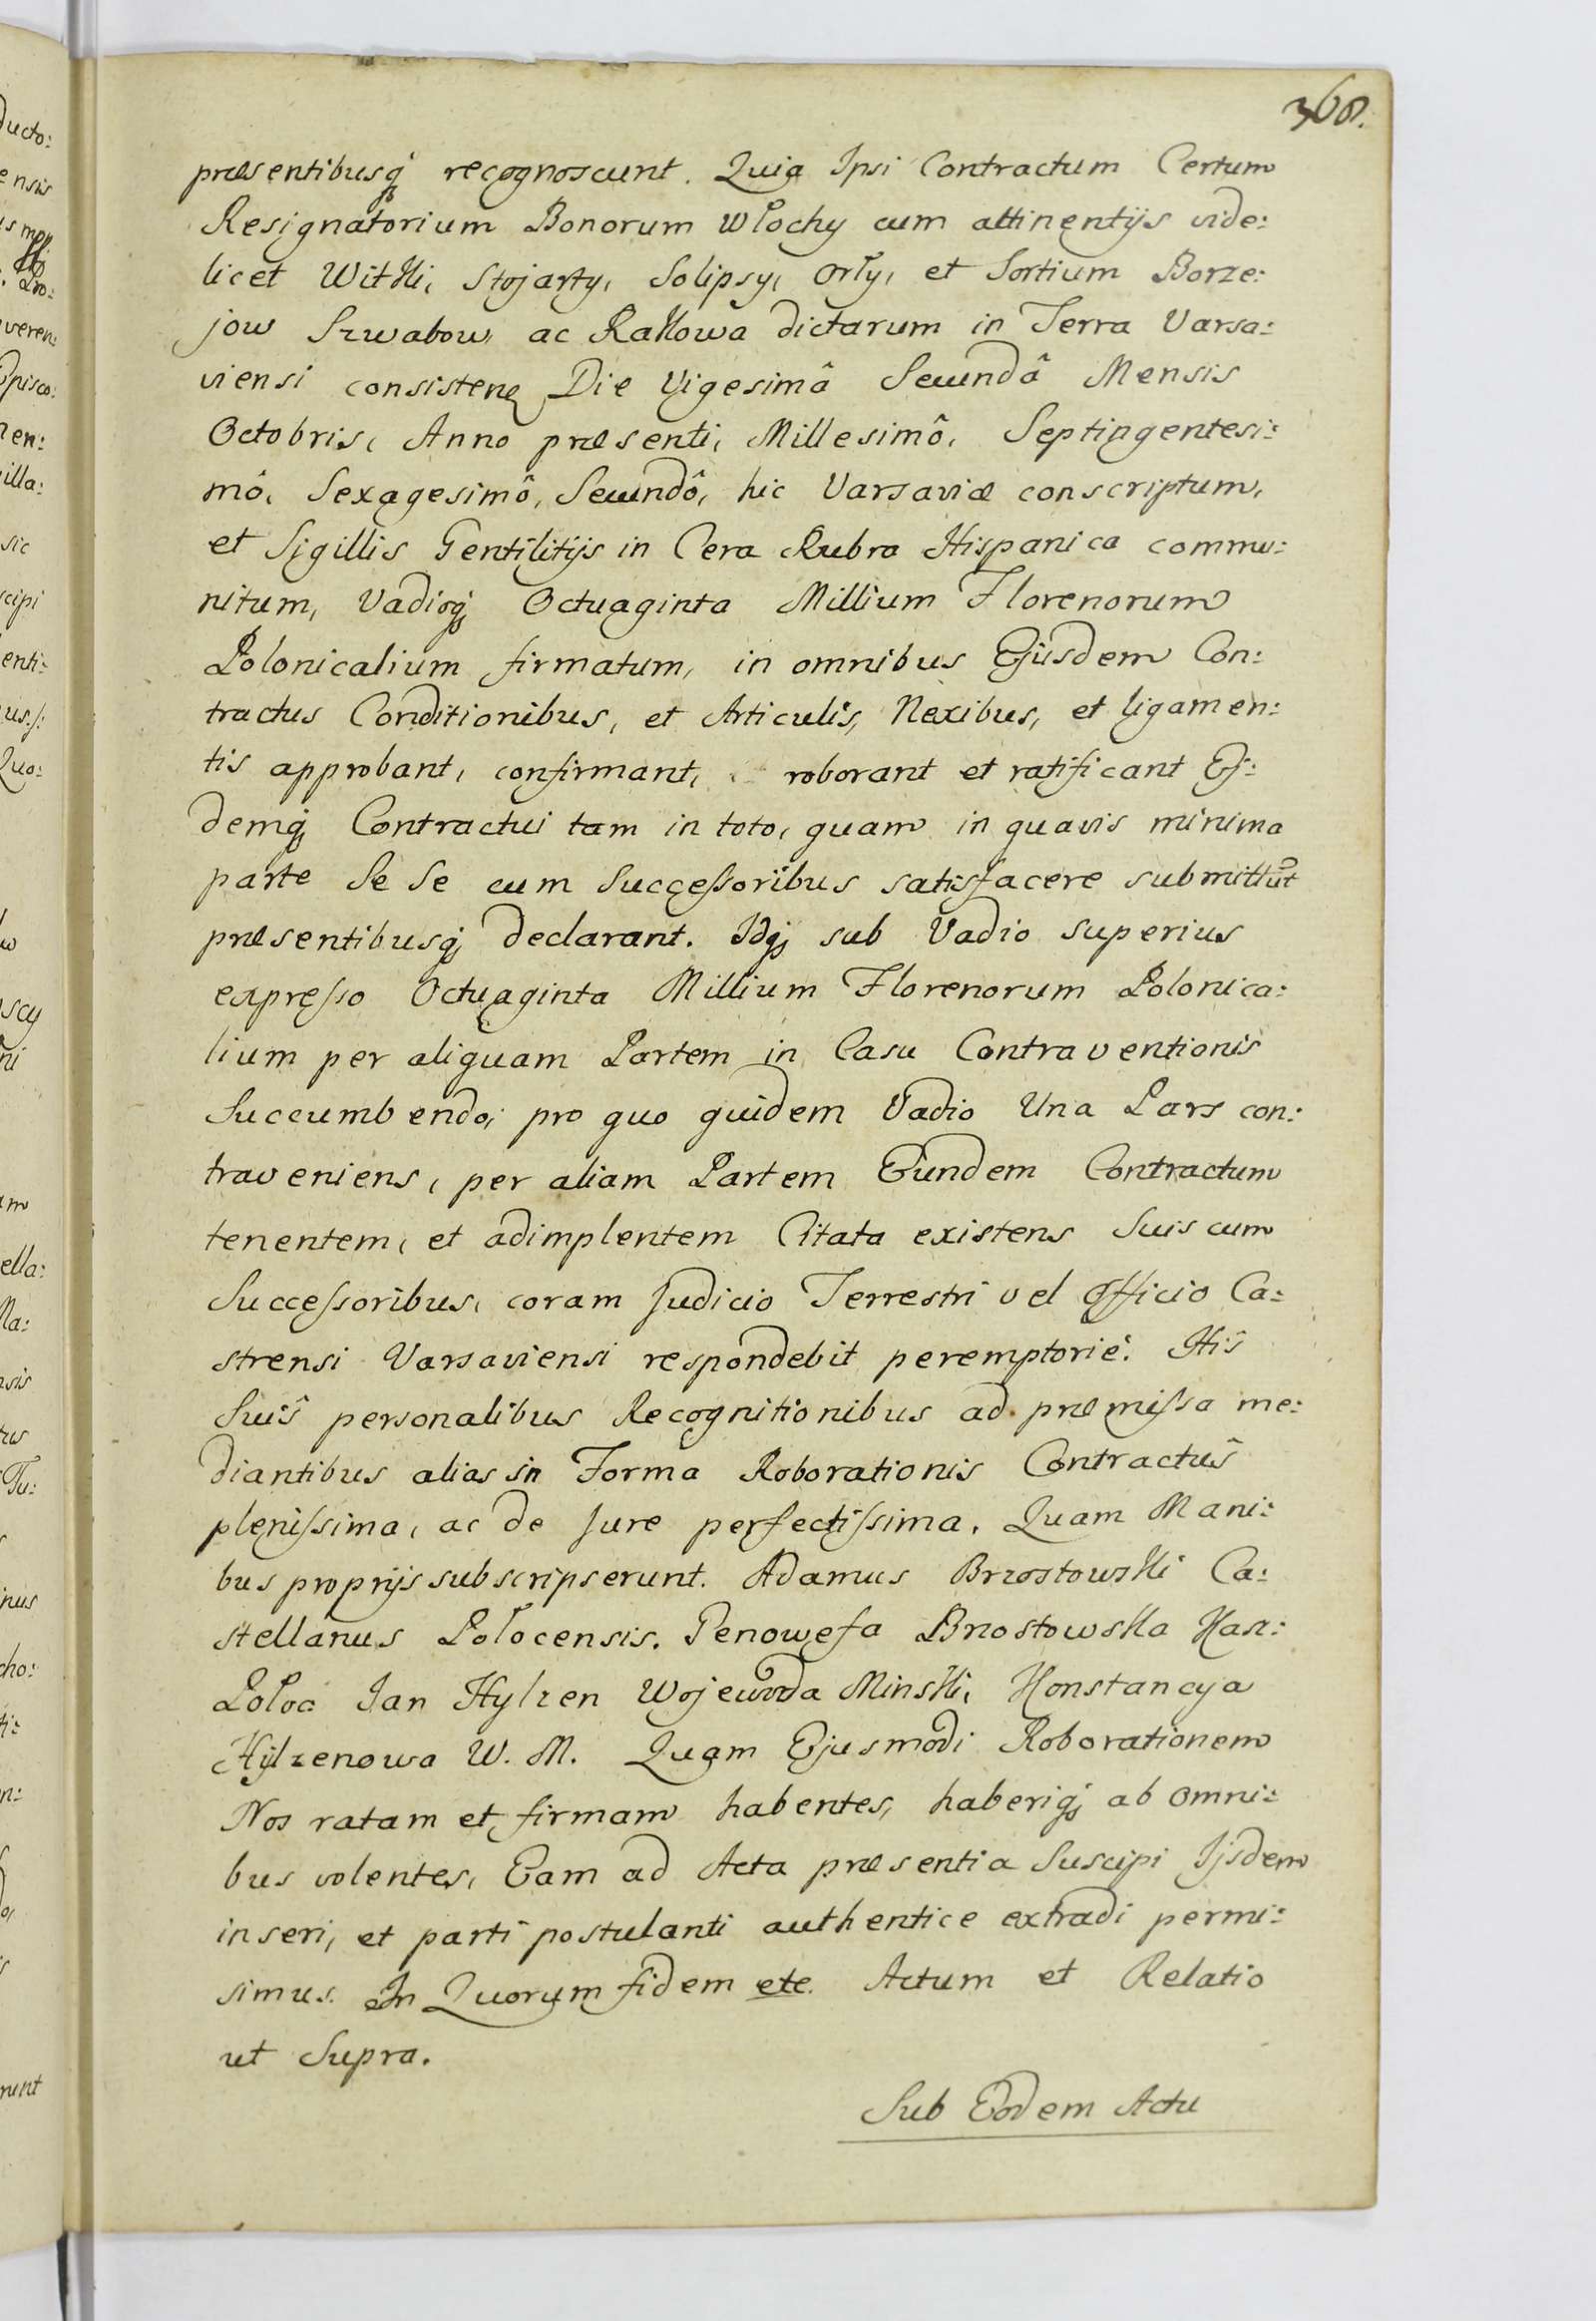 368.
præsentibusq́ recognoscunt. Quia Ipsi Contractum Certum
Resignatorium Bonorum Włochy cum attinentijs vide:
licet Witki, Stojarty, Solipsy, Orły, et Sortium Borze:
jow Szwabow, ac Rakowa dictarum in Terra Varsa:
viensi consisten Die Vigesimâ Secundâ Mensis
Octobris, Anno præsenti, Millesimô, Septingentesi:
mô, Sexagesimô, Secundô, hic Varsaviæ conscriptum,
et Sigillis Gentilitijs in Cera Rubra Hispanica commu:
nitum, Vadioq́ Octuaginta Millium Florenorum
Polonicalium firmatum, in omnibus Ejusdem Con:
tractus Conditionibus, et Articulis, Nexibus, et ligamen:
tis approbant, confirmant, roborant et ratificant Ej:
demq́ Contractui tam in toto, quam in quavis minima
parte Se Se cum Successoribus satisfacere submittūt
præsentibusq́ declarant. Idq́ sub Vadio superius
expresso Octuaginta Millium Florenorum Polonica:
lium per aliquam Partem in Casu Contraventionis
Succumbendo, pro quo quidem Vadio Una Pars con:
traveniens, per aliam Partem Eundem Contractum
tenentem, et adimplentem Citata existens Suis cum
Successoribus, coram Judicio Terrestri vel Officio Ca:
strensi Varsaviensi respondebit peremptorie. His
Suis personalibus Recognitionibus ad præmissa me:
diantibus alias in Forma Roborationis Contractûs
plenissima, ac de Jure perfectissima. Quam Mani:
bus proprijs subscripserunt. Adamus Brzostowski Ca:
stellanus Połocensis. Genowefa Brzostowska Kasz:
Połoc: Jan Hylzen Wojewoda Minski, Konstancya
Hylzenowa W. M. Quam Ejusmodi Roborationem
Nos ratam et firmam habentes, haberiq́ ab omni:
bus volentes, Eam ad Acta præsentia Suscipi Ijsdem
inseri, et parti postulanti authentice extradi permi:
simus. In Quorum fidem etc. Actum et Relatio
ut Supra.
Sub Eodem Actu